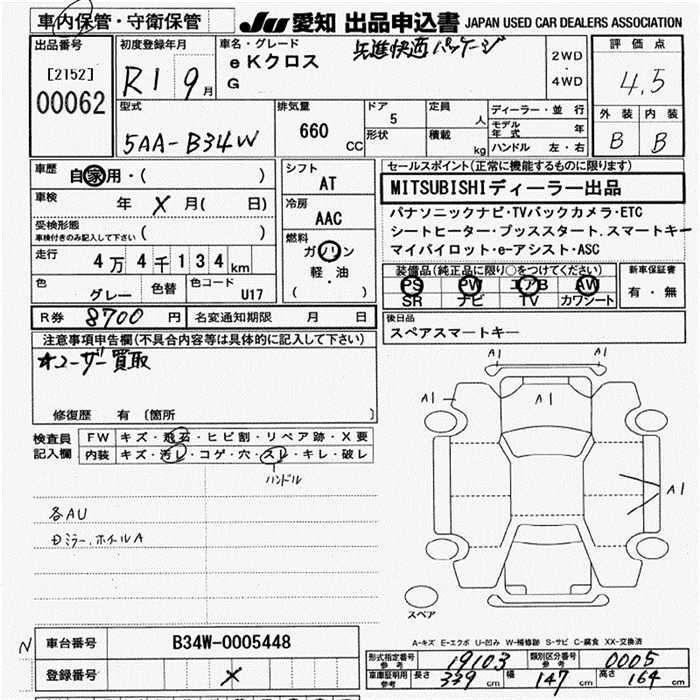 車内保管・守衛保管
JU 愛知 出品申込書 JAPAN USED CAR DEALERS ASSOCIATION
出品番号
[2152]
00062
初度登録年月
R1 9月
車名・グレード
eKクロス
G
先進快適パッケージ
2WD
・
4WD
評価点
4.5
外装 内装
B B
型式
5AA-B34W
排気量
660 CC
ドア 5
形状
定員 人
積載 kg
ディーラー・並行
モデル年式 年
ハンドル 左・右
車歴 自家用・( )
車検 年 X 月( 日)
受検形態
車検付きのみ記入して下さい ( )
走行 4万4千134km
色 グレー 色替 色コード U17
シフト
AT
冷房
AAC
燃料
ガソリン
軽・油
( )
R券 8700 円 名変通知期限 月 日
セールスポイント(正常に機能するものに限ります)
MITSUBISHIディーラー出品
パナソニックナビ・TVバックカメラ・ETC
シートヒーター・プッススタート、スマートキー
マイパイロット・e-アシスト・ASC
装備品(純正品に限り○をつけてください)
PS PW エアB AW
SR ナビ TV カワシート
新車保証書
有・無
後日品
スペアスマートキー
注意事項申告欄(不具合内容等は具体的に記入して下さい)
★ユーザー買取
修復歴 有 〔箇所 〕
検査員
記入欄
FW キズ・飛石・ヒビ割・リペア跡・X要
内装 キズ・汚レ・コゲ・穴・スレ・キレ・破レ
ハンドル
各AU
ミラー、ホイルA
A1 A1
A1 A1
A1
スペア
A-キズ E-エクボ U-凹み W-補修跡 S-サビ C-腐食 XX-交換済
N
車台番号 B34W-0005448
登録番号 X
形式指定番号 参考 19103 類別区分番号 参考 0005
車庫証明用 参考 長さ 339 cm 幅 147 cm 高さ 164 cm